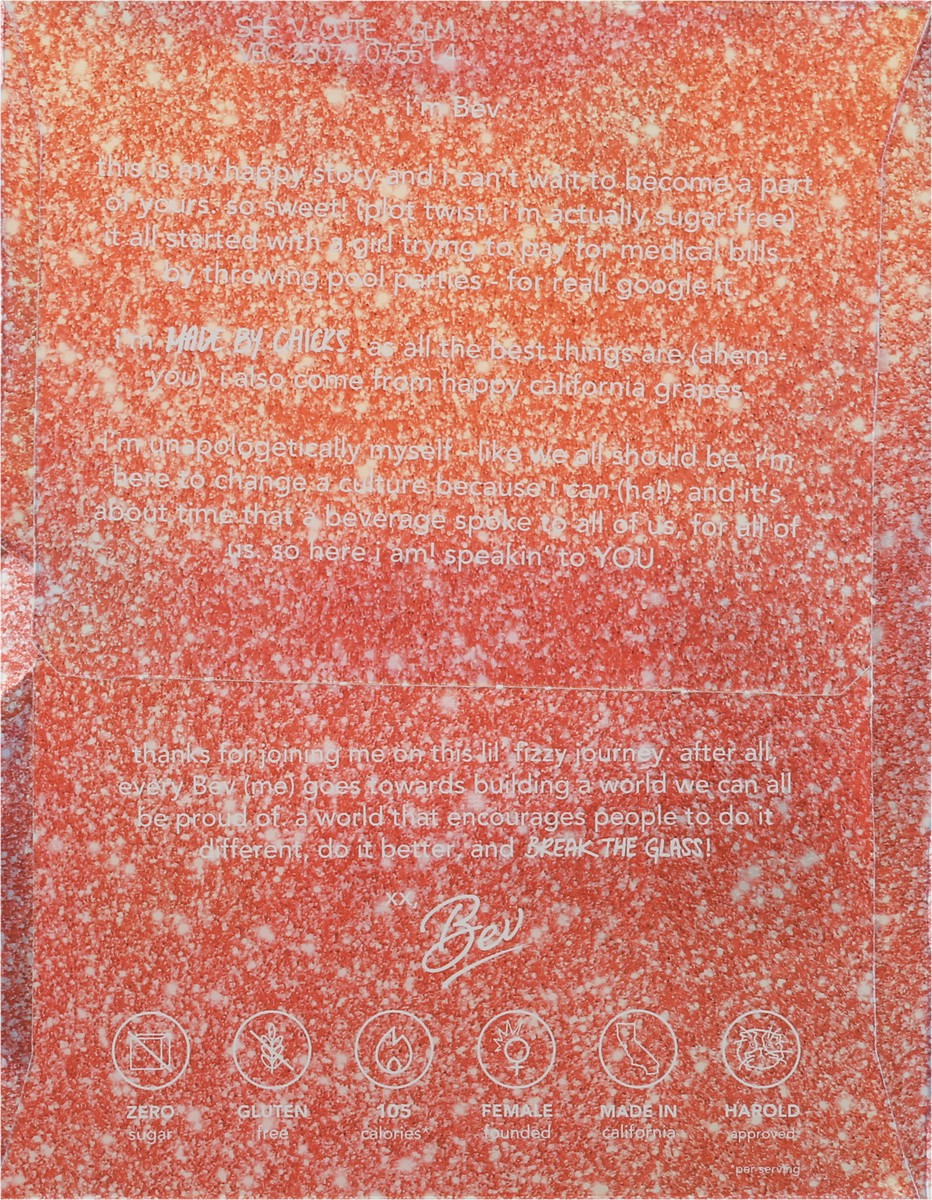 SHE V. CUTE GLM
VBC 23074 07:55 L4
i'm Bev
this is my happy story and i can't wait to become a part
of yours. so sweet! (plot twist, i'm actually sugar free)
it all started with a girl trying to pay for medical bills
by throwing pool parties - for real! google it.
i'm MADE BY CHICKS, as all the best things are (ahem -
you). i also come from happy california grapes.
i'm unapologetically myself - like we all should be. i'm
here to change a culture because i can (ha!). and it's
about time that a beverage spoke to all of us, for all of
us. so here i am! speakin' to YOU
thanks for joining me on this lil' fizzy journey. after all,
every Bev (me) goes towards building a world we can all
be proud of. a world that encourages people to do it
different, do it better, and BREAK THE GLASS!
xx,
Bev
ZERO GLUTEN 105 FEMALE MADE IN HAROLD
sugar free calories* founded california approved
per serving